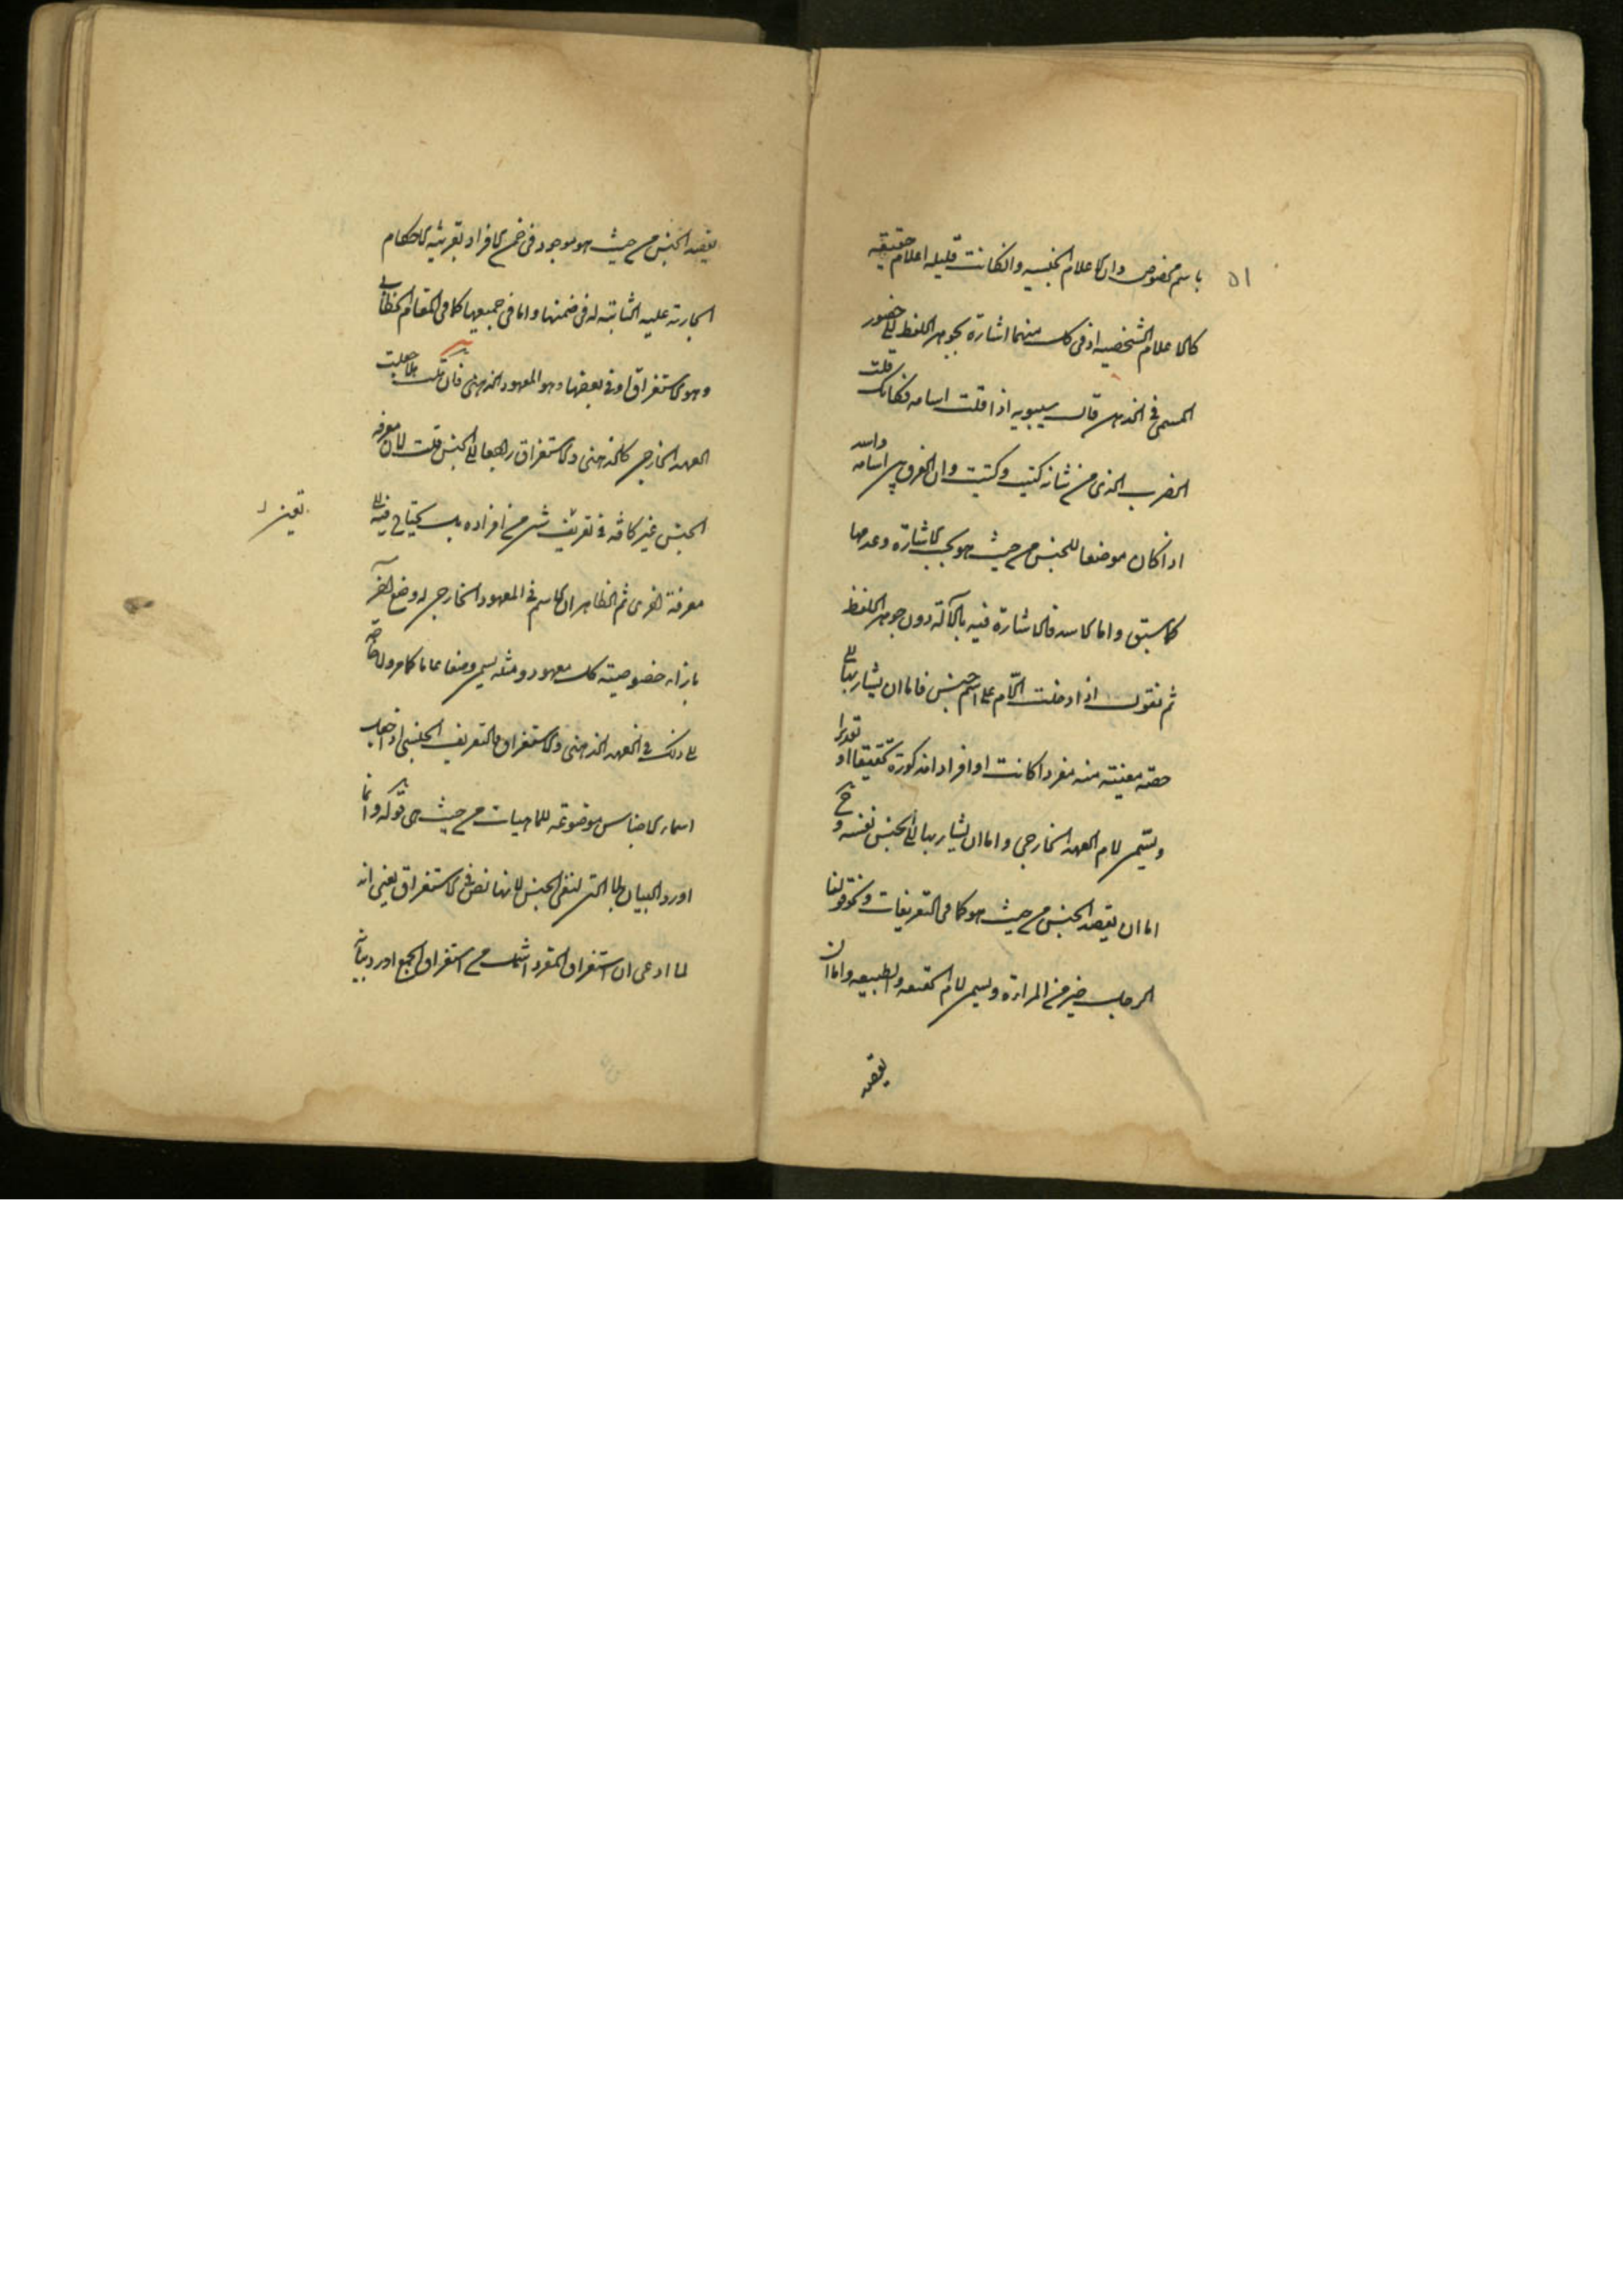 ٥١
باسم مخصوص وان الاعلام الجنسيه وانكانت قليله اعلام حقيقيه
كالاعلام الشخصيه اذ فى كل منهما اشارة بجوهر اللفظ الى حضور
المسمى فى الذهن قال سيبويه اذا قلت اسامه فكانك قلت
الضرب الذى من شانه كيت وكيت وان الفرق بين اسامه واسد
اذا كان موضوعا للجنس من حيث هو بحسب الاشارة وعدمها
كما سبق واما الاسد فالاشارة فيه بالآلة دون جوهر اللفظ
ثم نقول اذا دخلت اللام على اسم جنس فاما ان يشار بها الى
حصة معينة منه مفردا كانت او افرادا مذكورة تحقيقا او تقديرا
ويسمى لام العهد الخارجى واما ان يشار بها الى الجنس نفسه وح
اما ان يقصد الجنس من حيث هو كما فى التعريفات ونحو قولنا
الرجل خير من المراءة ويسمى لام الحقيقه والطبيعه واما ان
يقصد
يقصد الجنس من حيث هو موجود فى ضمن الافراد بقرينة الاحكام
الجارية عليه الثابتة له فى ضمنها واما فى جميعها كما فى المقام الخطابى
وهو الاستغراق او فى بعضها وهو المعهود الذهنى فان قلت هلا جعلت
العهد الخارجى كالذهنى والاستغراق راجعا الى الجنس قلت لان معرفة
الجنس غير كافية فى تعريف شئ من افراده بل يحتاج فيه الى
معرفة اخرى ثم الظاهر ان الاسم فى المعهود الخارجى له وضع آخر
بازاء خصوصية كل معهود ومثله يسمى وضعا عاما كما مر ولا حاجة
الى ذلك فى العهد الذهنى والاستغراق والتعريف الجنسى اذا جعل
اسماء الاجناس موضوعة للماهيات من حيث هى قوله وانما
اورد البيان بلا التى لنفى الجنس لانها نص فى الاستغراق يعنى انه
لما ادعى ان استغراق المفرد اشمل من استغراق الجمع اورد بيانه